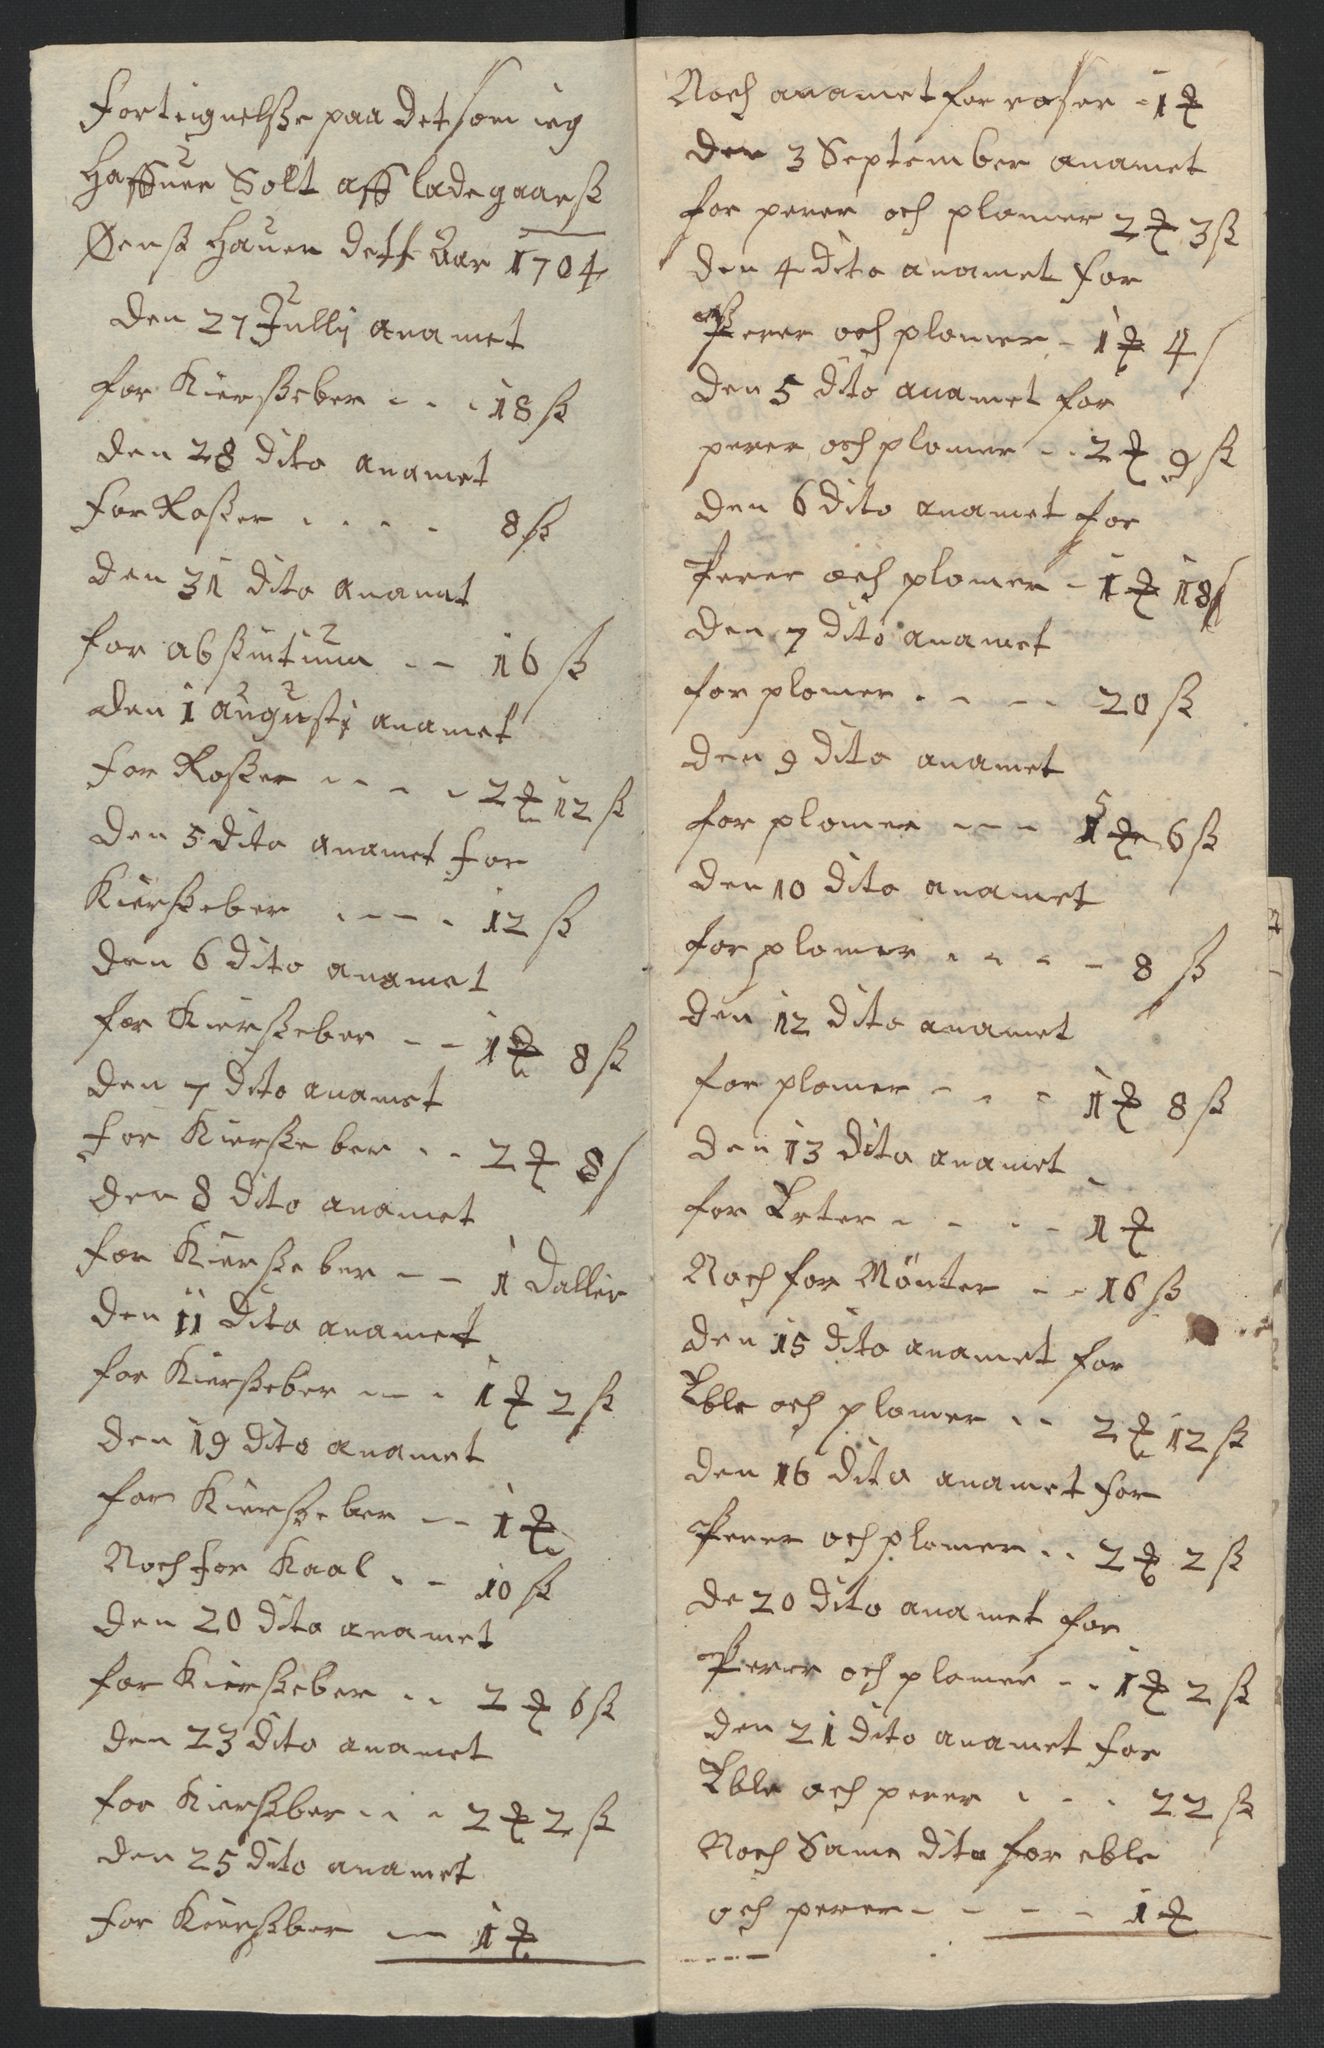 Forteignelsse paa det som ieg
Haffuer Solt aff ladegaarss
Øens Hauer dett Aar 1704
den 27 Jullij anamet
for Kiersseber - - - 18 ss
den 28 dito anamet
for Rosser - - - - 8 ss
den 31 dito anamet
for absintium - - 16 ss
den 1 augusti anamet
for Rosser - - - - 2 ⅌ 12 ss
den 5 dito anamet for
Kiersseber - - - - 12 ss
den 6 dito anamet
for Kiersseber - - 1 ⅌ 8 ss
den 7 dito anamet
for Kiersseber - - 2 ⅌ 8 s
den 8 dito anamet
for Kiersseber - - 1 Daller
den 11 dito anamet
for Kiersseber - - - 1 ⅌ 2 ss
den 19 dito anamet
for Kiersseber - - 1 ⅌
Noch for Kaal - - 10 ss
den 20 dito anamet
for Kiersseber - - 2 ⅌ 6 ss
den 23 dito anamet
for Kierssber - - - 2 ⅌ 2 ss
den 25 dito anamet
for Kierssber - - 1 ⅌
Noch anamet for roser - 1 ⅌
den 3 September anamet
for perer och plomer 2 ⅌ 3 ss
den 4 dito anamet for
Perer och plomer - 1 ⅌ 4 s
den 5 dito anamet for
perer och plomer - - 2 ⅌ 9 ss
den 6 dito anamet for
Perer och plomer - 1 ⅌ 18 s
den 7 dito anamet
for plomer - - - - 20 ss
den 9 dito anamet
for plomer - - - 5 ⅌ 6 ss
den 10 dito anamet
for plomer - - - - 8 ss
den 12 dito anamet
for plomer - - - 1 ⅌ 8 ss
den 13 dito anamet
for Erter - - - - 1 ⅌
Noch for Mønter - - 16 ss
den 15 dito anamet for
Eble och plomer - - 2 ⅌ 12 ss
den 16 dito anamet for
Perer och plomer - - 2 ⅌ 2 ss
de 20 dito anamet for
Perer och plomer - - 1 ⅌ 2 ss
den 21 dito anamet for
Eble och perer - - - 22 ss
Noch Same dito for eble
och perer - - - - 1 ⅌